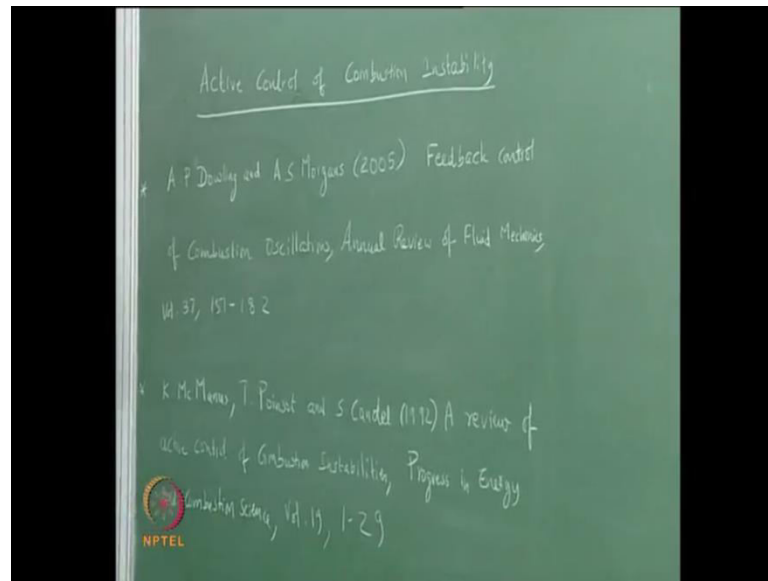 Active Control of Combustion Instability
* A P Dowling and A S Morgans (2005) Feedback control
of Combustion Oscillations, Annual Review of Fluid Mechanics,
Vol. 37, 151-182
* K. McManus, T. Poinsot and S. Candel (1992) A review of
active control of Combustion Instabilities, Progress in Energy
Combustion Science, Vol. 19, 1-29
NPTEL